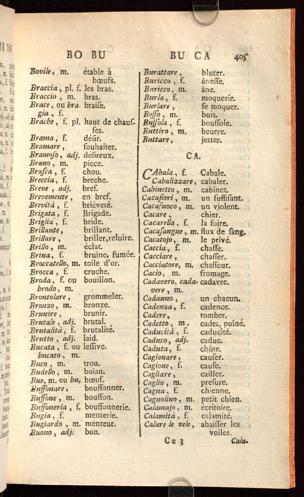 BO BU
BU CA 405
Bovile, m. étable à
bœufs.
Braccia, pl. f. les bras.
Braccio, m. bras.
Brace, ou bra braise.
gia, f.
Brache, f. pl. haut de chauf-
ses.
Brama, f. désir.
Bramare, souhaiter.
Bramoso, adj. désireux.
Brano, m. piece.
Brasca, f. chou.
Breccia, f. breche.
Breve, adj. bref.
Brevemente, en bref.
Brevità, f. briéveté.
Brigata, f. Brigade.
Briglia, f. bride.
Brillante, brillant.
Brillare, briller, reluire.
Brillo, m. éclat.
Brina, f. bruine, fumée.
Broccatello, m. toile d'or.
Brocca, f. cruche.
Broda, f. ou bouillon.
brodo, m.
Brontolare, grommeler.
Bronzo, m. bronze.
Brunire, brunir.
Brutale, adj. brutal.
Brutalità, f. brutalité.
Brutto, adj. laid.
Bucata, f. ou lessive.
bucato, m.
Buco, m. trou.
Budello, m. boiau.
Bue, m. ou bu, bœuf.
Buffonare, bouffonner.
Buffone, m. bouffon.
Buffoneria, f. bouffonnerie.
Bugia, f. menterie.
Bugiardo, m. menteur.
Buono, adj. bon.
Burattare, bluter.
Buricca, f. ânesse.
Buricco, m. âne.
Burla, f. moquerie.
Burlare, se moquer.
Bosso, m. buis.
Bussola, f. boussole.
Buttiro, m. beurre.
Buttare, jetter.
CA.
CAbala, f. Cabale.
Cabalizzare, cabaler.
Cabinetto, m. cabinet.
Cacafiori, m. un suffisant.
Cacafuoco, m. un violent.
Cacare, chier.
Cacarella, f. la foire.
Cacasangue, m. flux de sang.
Cacatojo, m. le privé.
Caccia, f. chasse.
Cacciare, chasser.
Cacciatore, m. chasseur.
Cacio, m. fromage.
Cadavero, cada- cadavre.
vere, m.
Cadauno, un chacun.
Cadenza, f. cadence.
Cadere, tomber.
Cadetto, m. cadet, puiné.
Caducità, f. caducité.
Caduco, adj. caduc.
Caduta, f. chûte.
Cagionare, causer.
Cagione, f. cause.
Cagliare, cailler.
Caglio, m. presure.
Cagna, f. chienne.
Cagnolino, m. petit chien.
Calamajo, m. écritoire.
Calamità, f. calamité.
Calare le vele, abaisser les
voiles.
Cc 3 Cala-